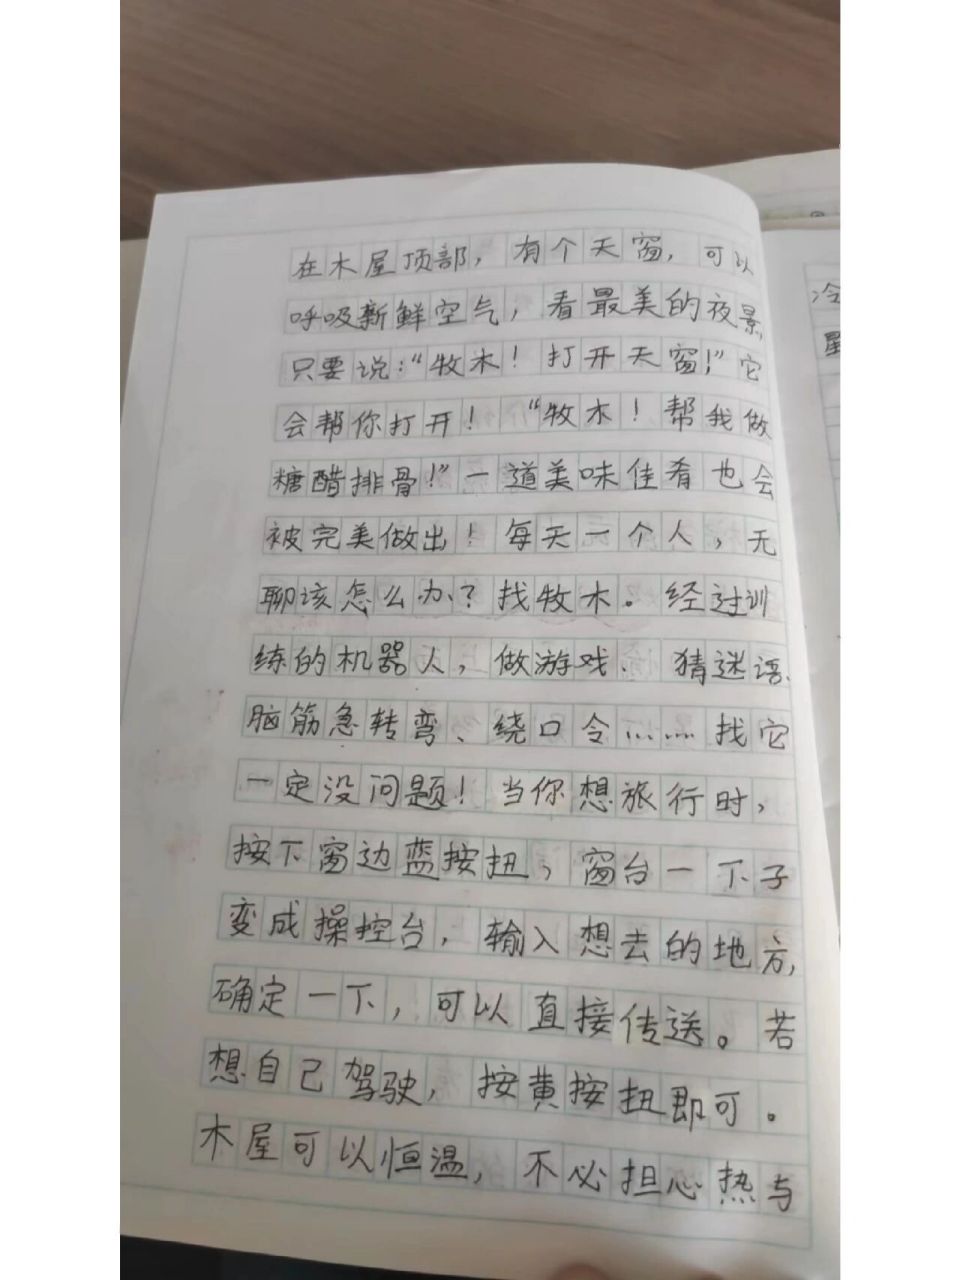 在木屋顶部，有个天窗，可以
呼吸新鲜空气，看最美的夜景，
只要说：“牧木！打开天窗！”它
会帮你打开！“牧木！帮我做
糖醋排骨！”一道美味佳肴也会
被完美做出！每天一个人，无
聊该怎么办？找牧木。经过训
练的机器人，做游戏、猜迷语、
脑筋急转弯、绕口令……找它
一定没问题！当你想旅行时，
按下窗边蓝按扭，窗台一下子
变成操控台，输入想去的地方，
确定一下，可以直接传送。若
想自己驾驶，按黄按扭即可。
木屋可以恒温，不必担心热与
冷
星